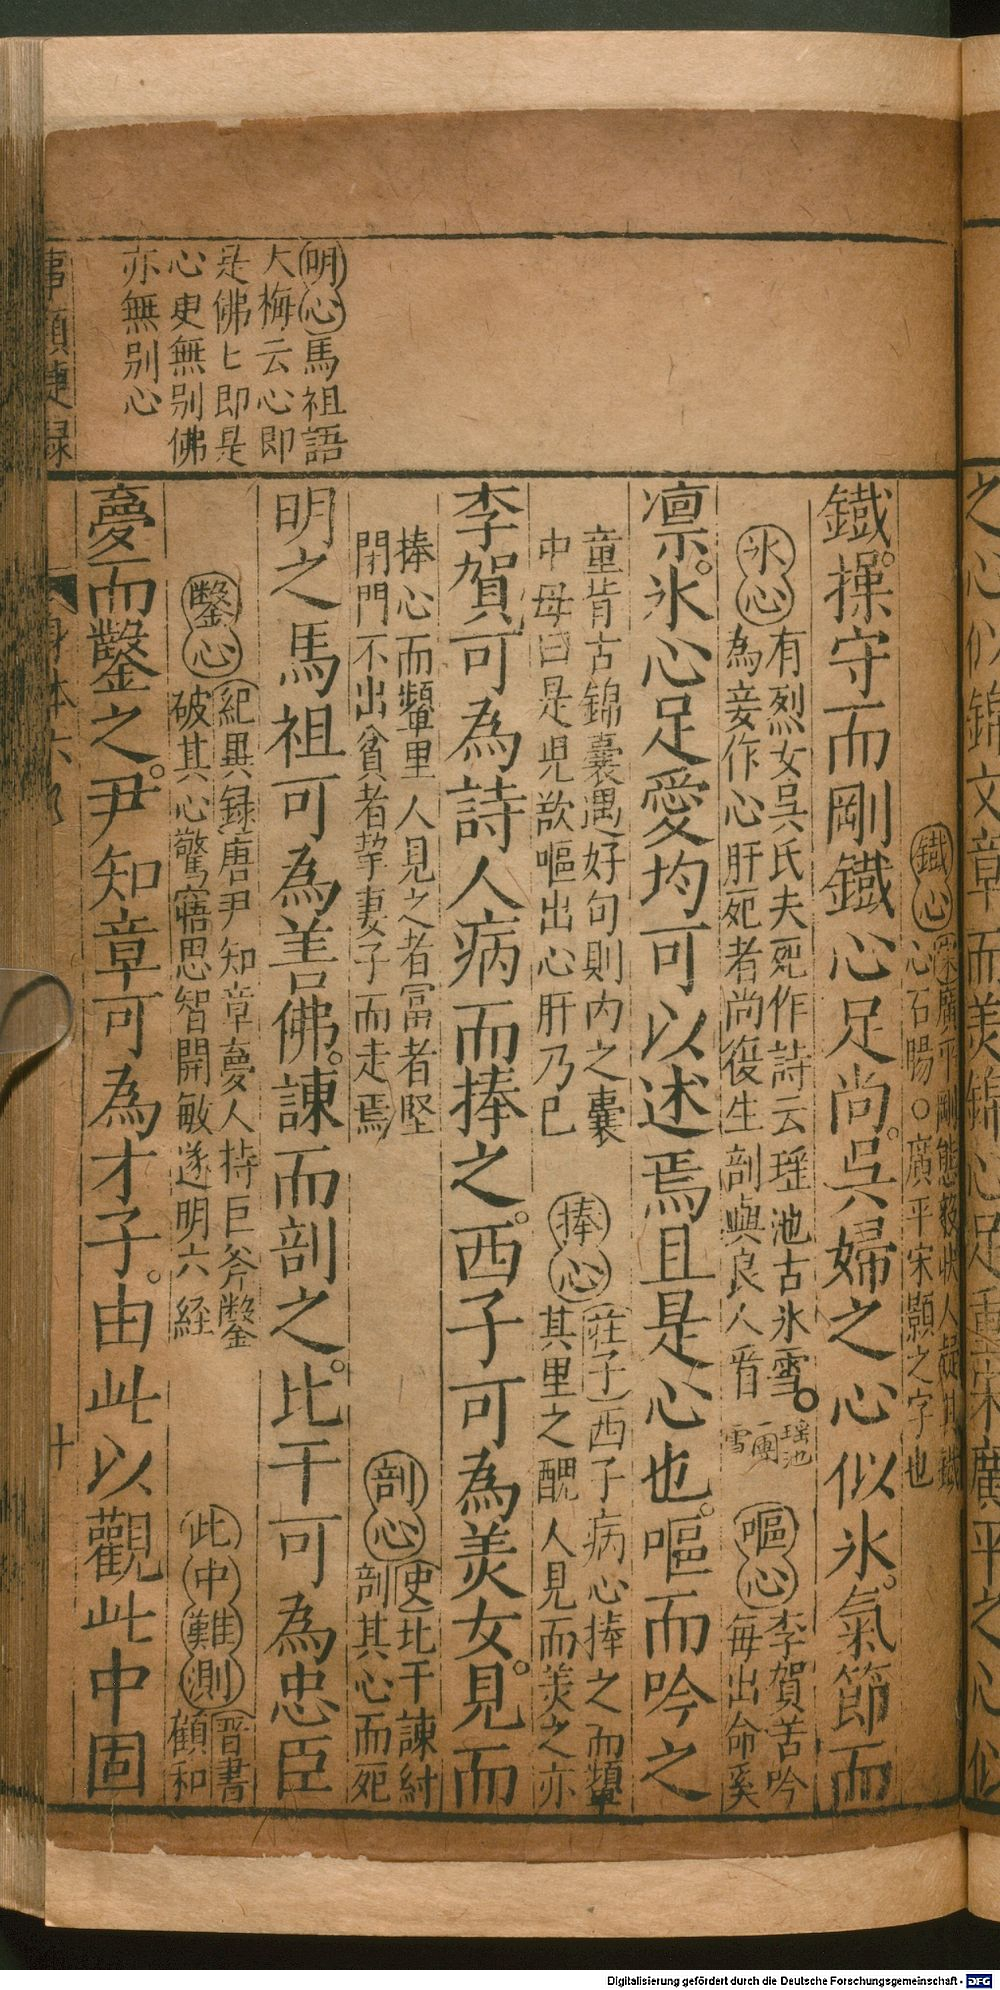 之心似錦文章而羨錦心足重宋廣平之心似
鐵心 宋廣平剛態毅狀人疑其鐵
心石腸○廣平宋顥之字也
鐵操守而剛鐵心足尚吳婦之心似氷氣節而
氷心 有烈女吳氏夫死作詩云瑶池古氷雪 瑶池
一團
雪
為妾作心肝死者尚復生剖與良人看
嘔心 李賀苦吟
每出命奚
凛氷心足愛均可以述焉且是心也嘔而吟之
童背古錦囊遇好句則内之囊
中母曰是児欲嘔出心肝乃已
捧心 莊子西子病心捧之而顰
其里之醜人見而羨之亦
李賀可為詩人病而捧之西子可為美女見而
捧心而顰里人見之者富者堅
閉門不出貧者挈妻子而走焉
剖心 史比干諫紂
剖其心而死
明之馬祖可為善佛諫而剖之比干可為忠臣
鑿心 紀異録唐尹知章夢人持巨斧鑿
破其心驚寤思智開敏遂明六経
此中難測 晋書
顧和
夢而鑿之尹知章可為才子由此以觀此中固
明心馬祖語
大梅云心即
是佛匕即是
心更無别佛
亦無别心
事類捷録
身体六 十
Digitalisierung gefördert durch die Deutsche Forschungsgemeinschaft - DFG